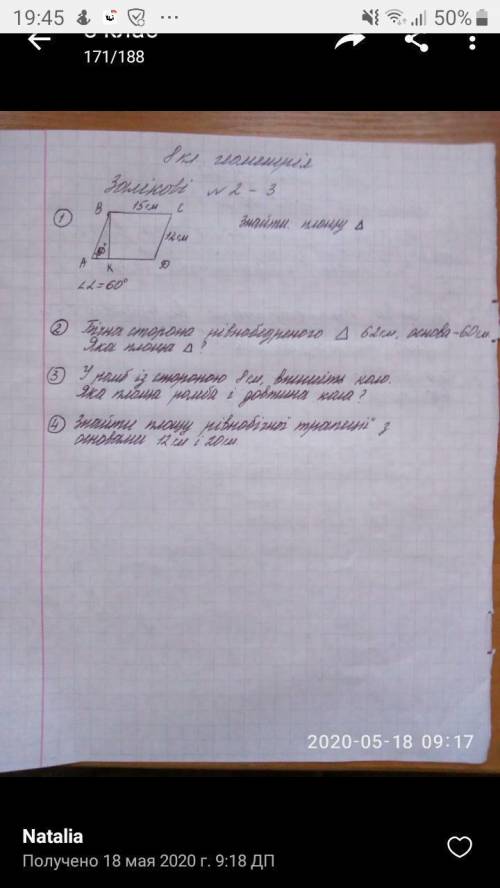 19:45
50%
8 клас
171/188
8 кл геометрія
Залікові №2-3
① B 15см C Знайти площу Δ
12см
A K D
∠L=60°
② Бічна сторона рівнобедреного Δ 62см, основа-60см.
Яка площа Δ?
③ У ромб із стороною 8см, впишіть коло.
Яка площа ромба і довжина кола?
④ Знайти площу рівнобічної трапеції з
основами 12см і 20см
2020-05-18 09:17
Natalia
Получено 18 мая 2020 г. 9:18 ДП